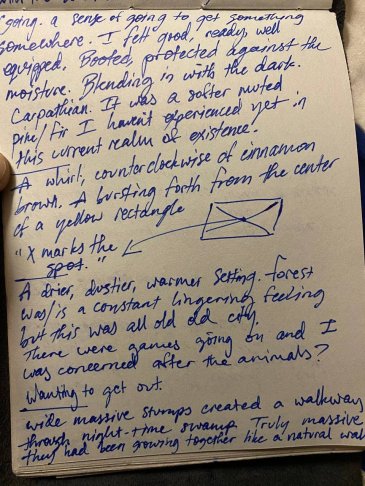 "going. a sense of going to get something
somewhere. I felt good, ready, well
equipped. Booted, protected against the
moisture. Blending in with the dark.
Carpathian. It was a softer muted
pine/fir I havent experienced yet in
this current realm of existence.
A whirl, counterclockwise of cinnamon
brown. A bursting forth from the center
of a yellow rectangle
"X marks the
spot."
A drier, dustier, warmer setting. forest
was/is a constant lingering feeling
but this was all old old city.
There were games going on and I
was concerned after the animals?
Wanting to get out.
wide massive stumps created a walkway
through night-time swamp. Truly massive
they had been growing together like a natural